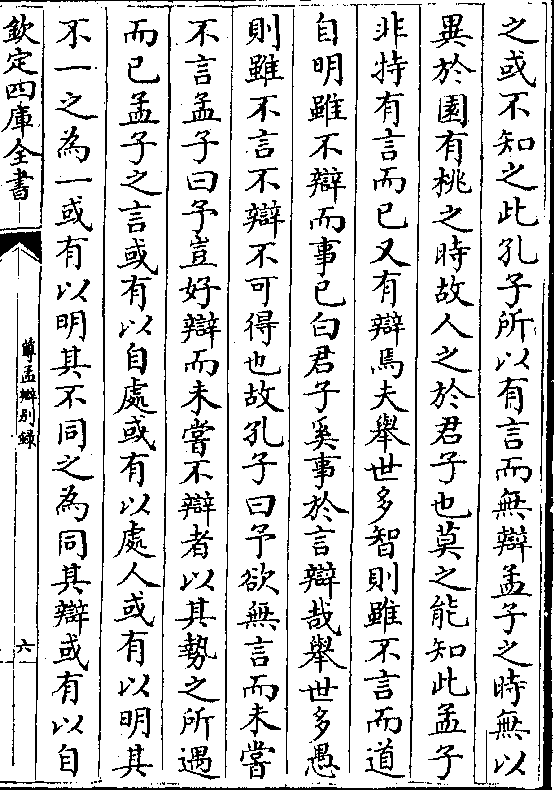 之或不知之此孔子所以有言而無辯孟子之時無以
異於園有桃之時故人之於君子也莫之能知此孟子
非特有言而已又有辯焉夫舉世多智則雖不言而道
自明雖不辯而事已白君子奚事於言辯哉舉世多愚
則雖不言不辯不可得也故孔子曰予欲無言而未嘗
不言孟子曰予豈好辯而未嘗不辯者以其勢之所遇
而已孟子之言或有以自處或有以處人或有以明其
不一之為一或有以明其不同之為同其辯或有以自
欽定四庫全書
尊孟辯別錄
六